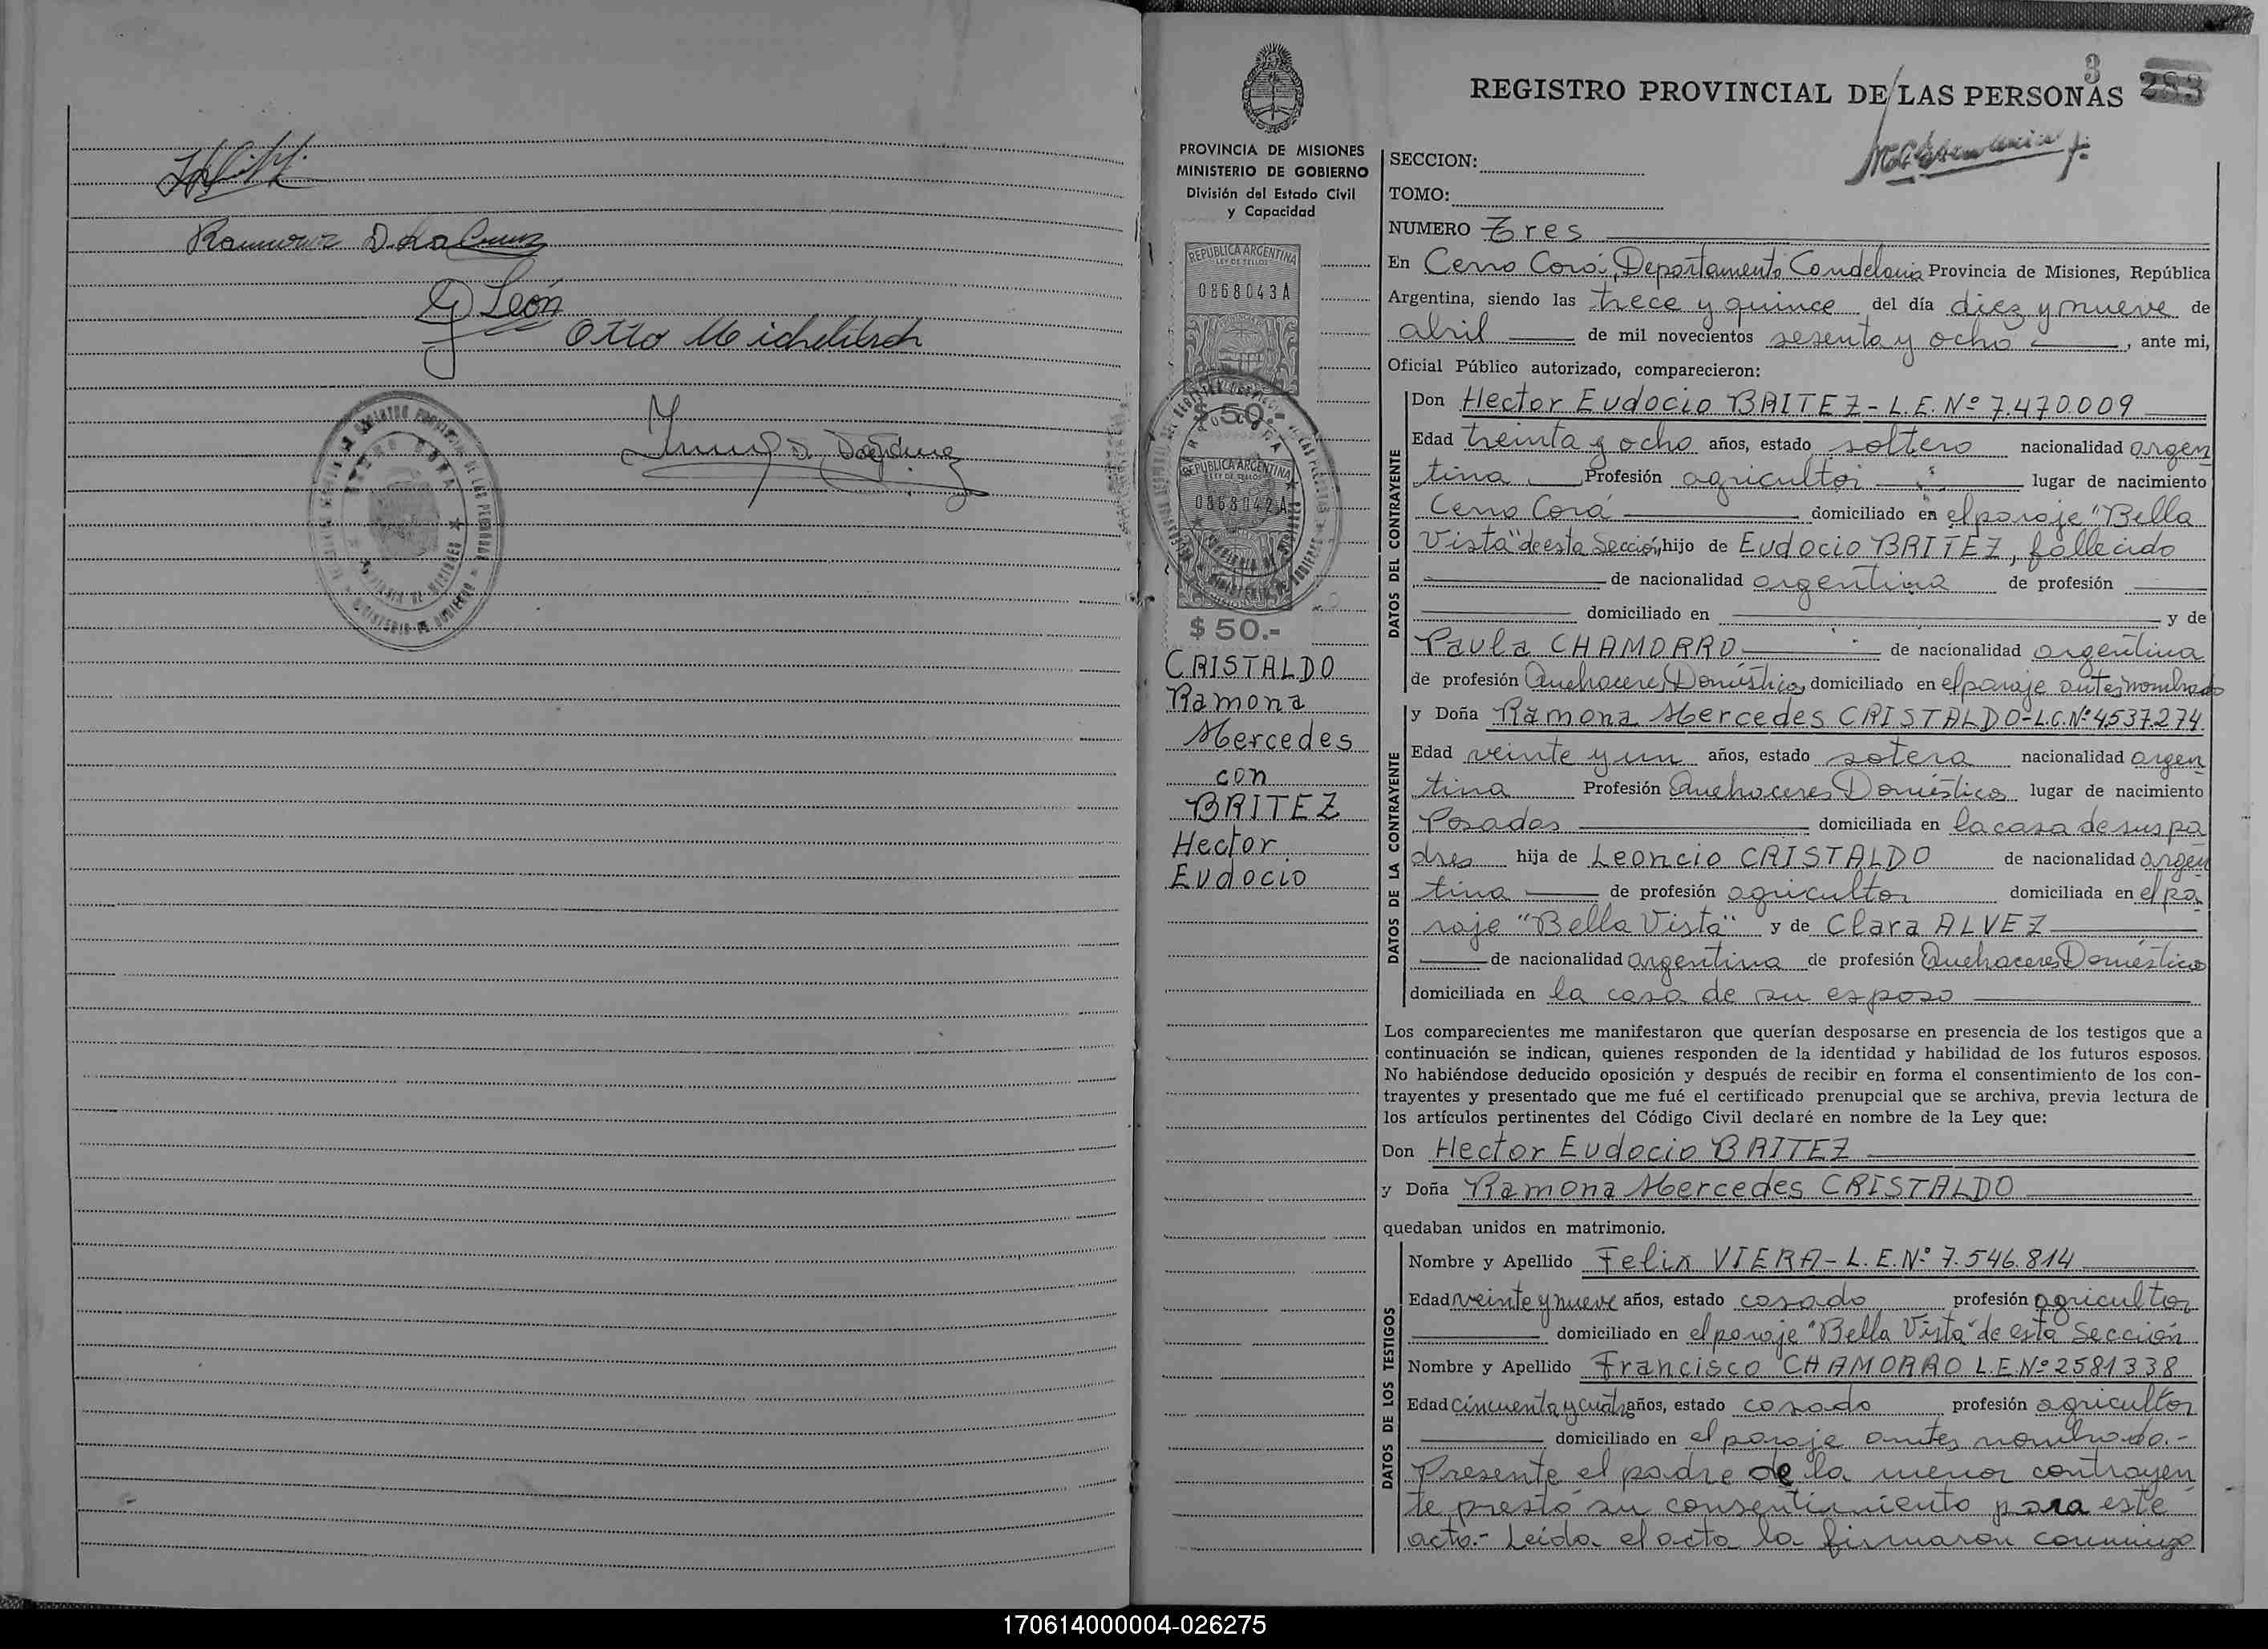 Ramirez D. La Cruz
G León
Otto Meichelitsch
3
283
REGISTRO PROVINCIAL DE LAS PERSONAS
PROVINCIA DE MISIONES
MINISTERIO DE GOBIERNO
División del Estado Civil
y Capacidad
REPUBLICA ARGENTINA
LEY DE SELLOS
0868043A
$ 50.-
REPUBLICA ARGENTINA
LEY DE SELLOS
0868042A
$ 50.-
CRISTALDO
Ramona
Mercedes
con
BRITEZ
Hector
Eudocio
SECCION:
TOMO:
NUMERO Tres
En Cerro Corá, Departamento Candelaria Provincia de Misiones, República
Argentina, siendo las trece y quince del día diez y nueve de
abril de mil novecientos sesenta y ocho, ante mi,
Oficial Público autorizado, comparecieron:
DATOS DEL CONTRAYENTE
Don Hector Eudocio BRITEZ - L.E. Nº 7.470.009
Edad treinta y ocho años, estado soltero nacionalidad argen
tina Profesión agricultor lugar de nacimiento
Cerro Corá domiciliado en el paraje "Bella
Vista" de esta Sección, hijo de Eudocio BRITEZ, fallecido
de nacionalidad argentina de profesión
domiciliado en y de
Paula CHAMORRO de nacionalidad argentina
de profesión Quehaceres Domésticos domiciliado en el paraje antes nombrado
DATOS DE LA CONTRAYENTE
y Doña Ramona Mercedes CRISTALDO - L.C. Nº 4537.274
Edad veinte y un años, estado sotera nacionalidad argen
tina Profesión Quehaceres Domésticos lugar de nacimiento
Posadas domiciliada en la casa de sus pa
dres hija de Leoncio CRISTALDO de nacionalidad argen
tina de profesión agricultor domiciliada en el pa
raje "Bella Vista" y de Clara ALVEZ
de nacionalidad argentina de profesión Quehaceres Domésticos
domiciliada en la casa de su esposo
Los comparecientes me manifestaron que querían desposarse en presencia de los testigos que a
continuación se indican, quienes responden de la identidad y habilidad de los futuros esposos.
No habiéndose deducido oposición y después de recibir en forma el consentimiento de los con-
trayentes y presentado que me fué el certificado prenupcial que se archiva, previa lectura de
los artículos pertinentes del Código Civil declaré en nombre de la Ley que:
Don Hector Eudocio BRITEZ
y Doña Ramona Mercedes CRISTALDO
quedaban unidos en matrimonio.
DATOS DE LOS TESTIGOS
Nombre y Apellido Felix VIERA - L.E. Nº 7.546.814
Edad veinte y nueve años, estado casado profesión agricultor
domiciliado en el paraje "Bella Vista" de esta Sección
Nombre y Apellido Francisco CHAMORRO L.E. Nº 2581338
Edad cincuenta y cuatro años, estado casado profesión agricultor
domiciliado en el paraje antes nombrado.-
Presente el padre de la menor contrayen
te prestó su consentimiento para este
acto.- Leida el acta la firmaron conmigo
170614000004-026275